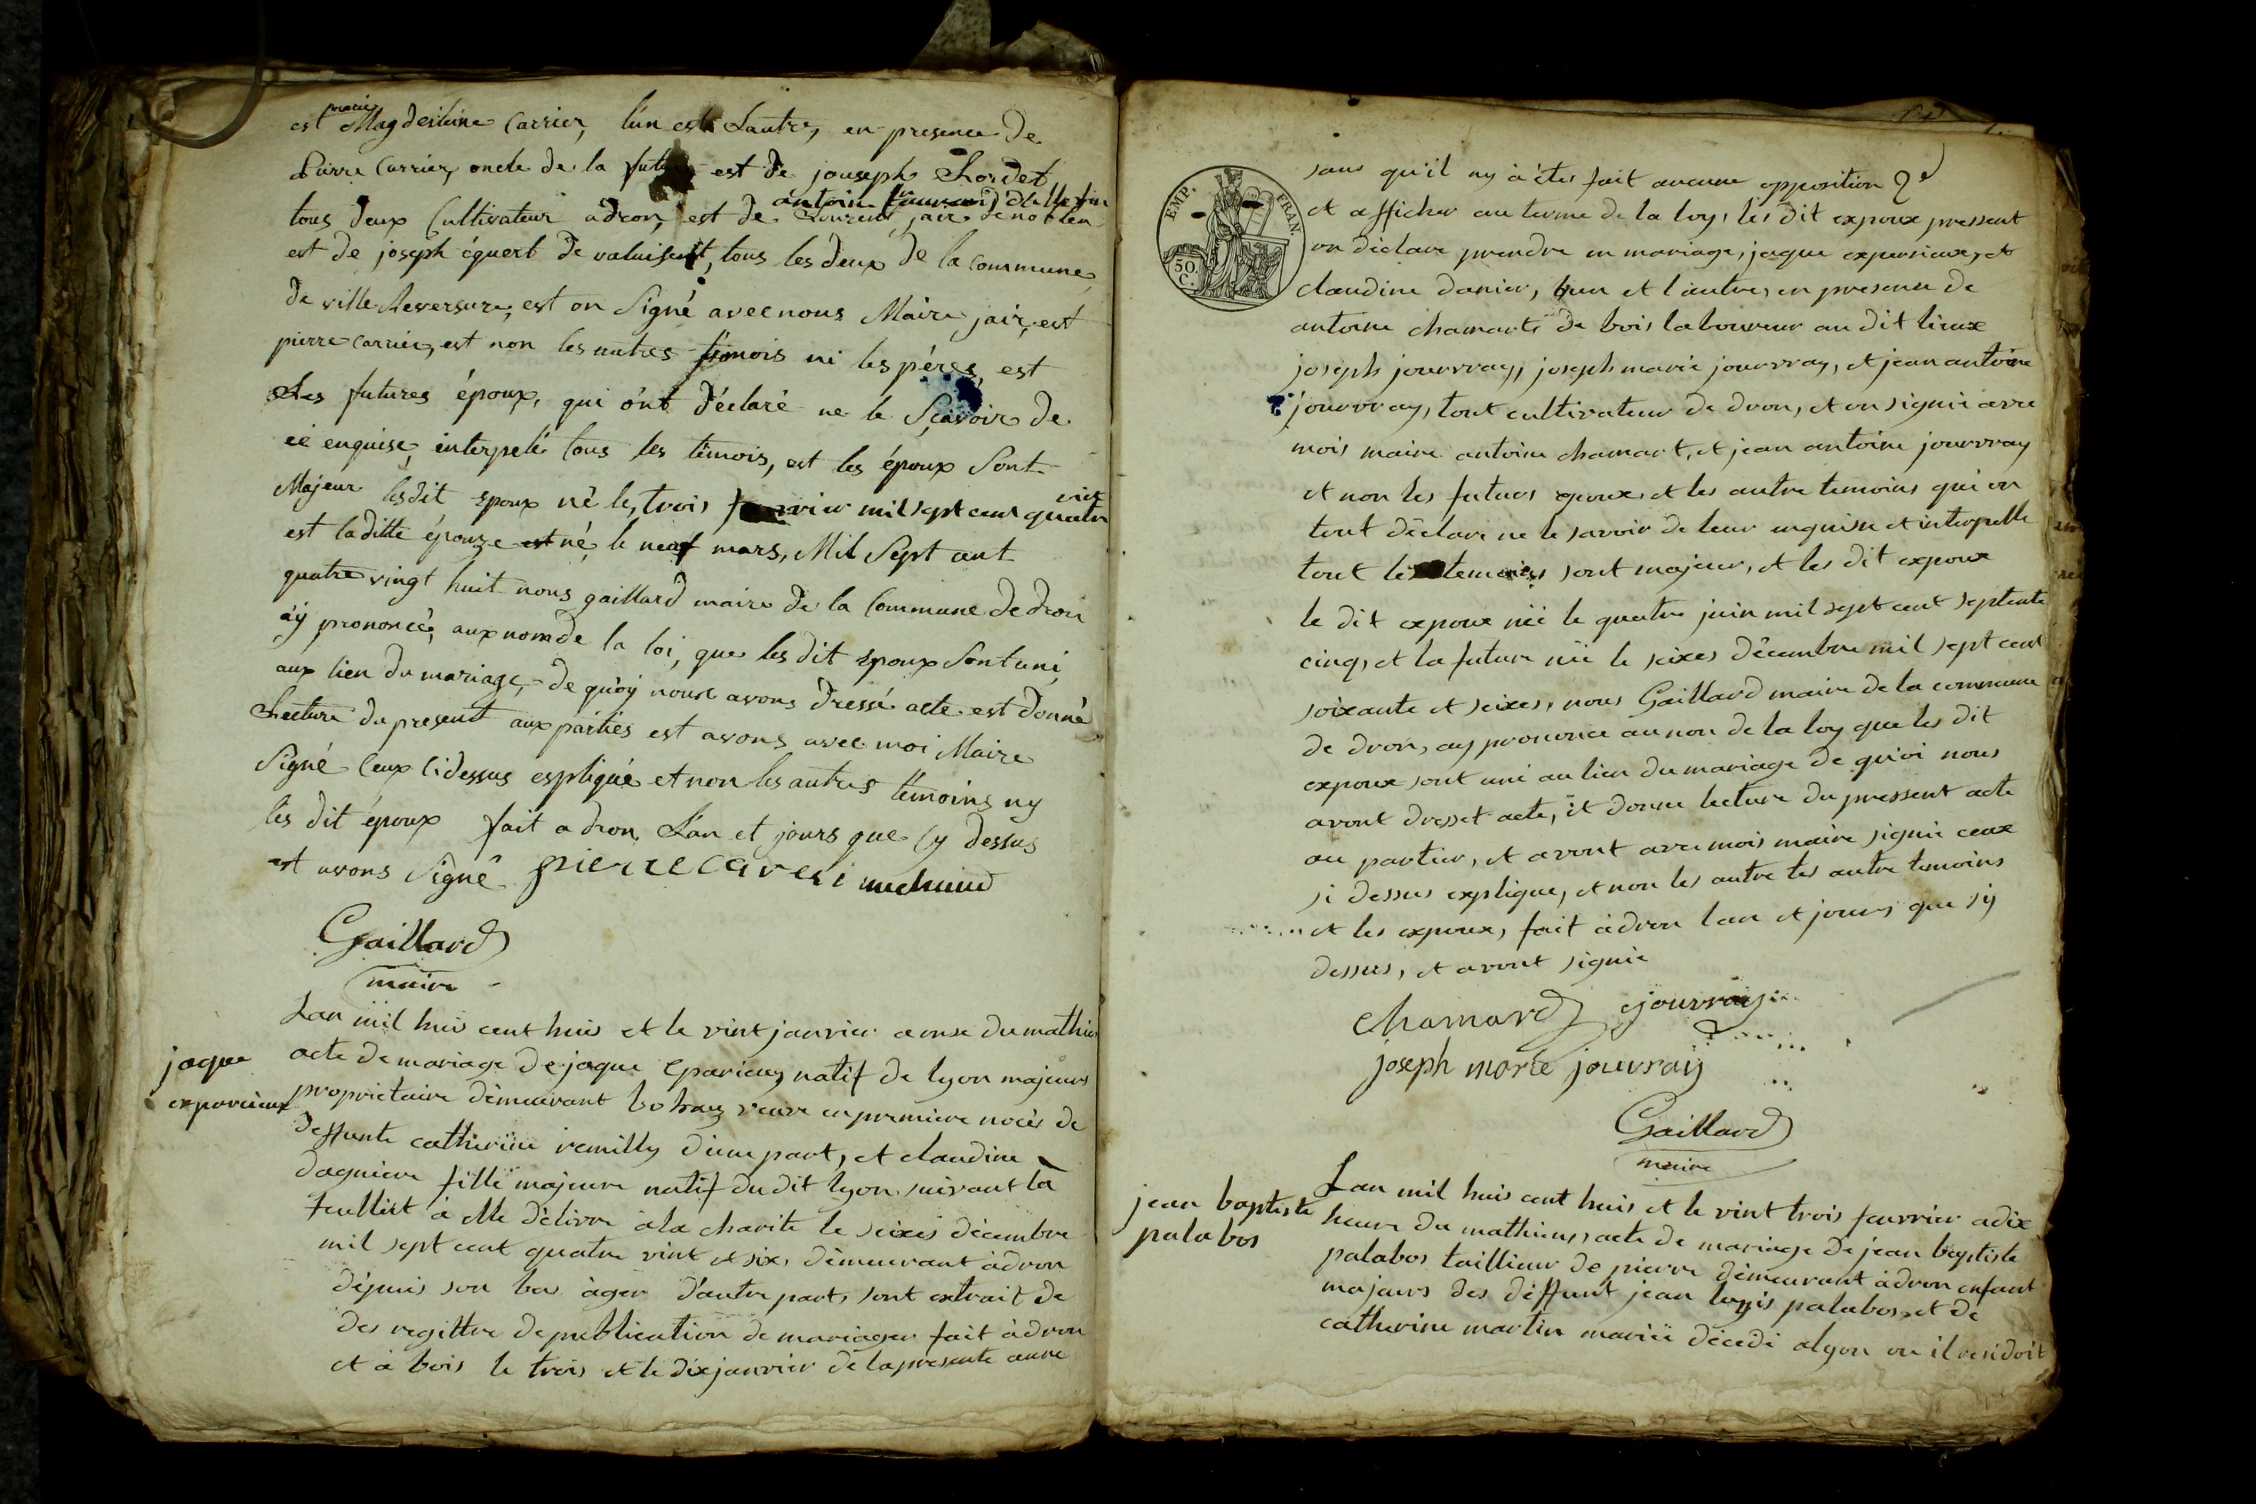 marie
est Magdeileine Carrier, lun est Lautre, en presence de
Pierre Carrier, oncle de la future est de jouseph Lordet
tous deux Cultivateur a dron, est de
est de joseph équert de valuisent, tous les deux de la Commune
de ville Reversure, est on Signé avec nous Maire jair, est
pierre carrier, est non les autres temois ni les péres, est
Les futures époux, qui ónt déclaré ne le Sçavoir de
ce enquise, interpelé tous les témois, est les époux Sont
Majeur lesdit epoux né le, trois mil sept cent quatre vint
est laditte épouze est né, le neuf mars, Mil Sept cent
quatre vingt huit nous gaillard maire de la Commune de dron
áy prononcé, aux nom de la loi, que les dit epoux Sont uni
aux lien du mariage, de quoy nous avons dressé acte est donné
Lecture du present aux parties est avons avec moi Maire
Signé Ceux Cidessus espliqué et non les autres temoins ny
les dit époux fait a dron Lan et jours que Cy dessus
est avons Signé pierre carei
Gaillard
maire
Lan mil huis cent huis et le vint janvier a onse du mathin
acte de mariage de jaque Eparieux natif de lyon majeurs
jaque
exparieux
proprietaire démeurant veuve en premiere nocés de
deffunte catherine remilly dune part, et claudine
dagniere fille majeure natif du dit lyon suivant la
feullist à elle délivre à la charite le seixes décembre
mil sept cent quatre vint et six, démeurant à dron
dépuis son bas àger d'autre part, sont extrait de
des regittre de publication de mariager fait à dron
et à bois le trois et le dix janvier de la presente anne
EMP. FRAN.
50.
C.
sans qu'il ny à étes fait aucune opposition
et afficher au terme de la loy, les dit expoux pressent
on déclare prendre en mariage, jaque experieux, et
claudine danier, lun et l'autre, en presence de
antoine chamart de bois laboureur au dit lieux
joseph jourvray, joseph marie jourvray, et jean antoine
jourvray, tout cultivateur de dron, et on signié avec
mois maire antoine chamart, et jean antoine jourvray
et non les futurs epoux, et les autre temoins qui on
tout déclare ne le savoir de leur enquise et interpelle
tout les temoins sont majeur, et les dit expoux
le dit expoux née le quatre juin mil sept cent septente
cinq, et la future née le seixes décembre mil sept cent
soixante et seixes, nous Gaillard maire de la commune
de dron, ay prononce au non de la loy que les dit
expoux sont uni au lien du mariage de quoi nous
avont dresset acte, et donne lecture du pressent acte
au partier, et avont avec mois maire signié ceux
si dessus explique, et non les autre les autre temoins
et les expoux, fait à dron lan et jours que sy
dessus, et avont signié
chamard jourvray
joseph marie jouvray
Gaillard
maire
jean baptiste
palabos
Lan mil huis cent huis et le vint trois feuvrier a dix
heure du mathiens acte de mariage de jean baptiste
palabos taillieur de pierre démeurant à dron enfant
majeurs des déffunt jean louis palabos, et de
catherine martin mariée décedé alyon ou il residoit